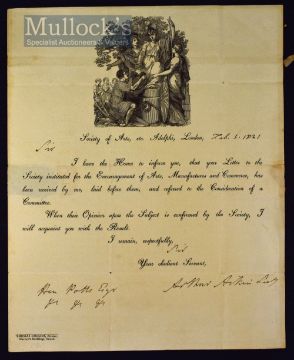 Mullock's
Specialist Auctioneers & Valuers
Society of Arts, etc. Adelphi, London, Feb. 1821
Sir
I have the Honor to inform you, that your Letter to the
Society instituted for the Encouragement of Arts, Manufactures and Commerce, has
been received by me, laid before them, and referred to the Consideration of a
Committee.
When their Opinion upon the Subject is confirmed by the Society, I
will acquaint you with the Result.
I remain, respectfully,
Sir
Your obedient Servant,
Arthur Aikin Secy
Potts Esqr